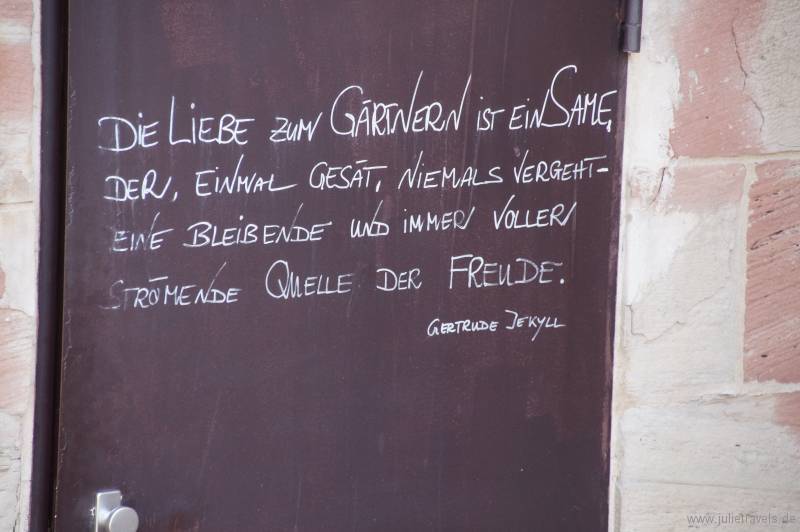 Die Liebe zum Gärtnern ist ein Same,
der, einmal gesät, niemals vergeht-
eine bleibende und immer voller
strömende Quelle der Freude.
Gertrude Jekyll
www.julietravels.de